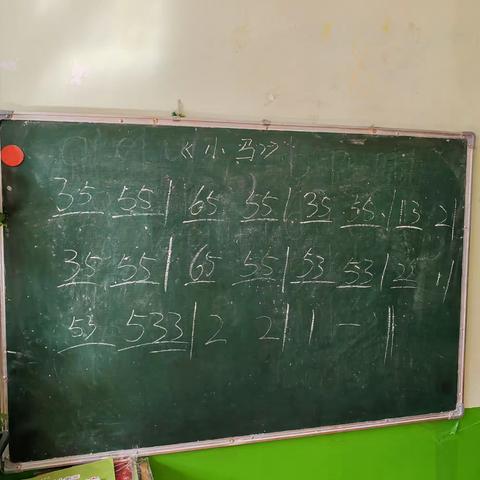 《小马》
35 55 | 65 55 | 35 55 | 13 2 |
35 55 | 65 55 | 53 53 | 22 1 |
53 533 | 2 2 | 1 — ‖